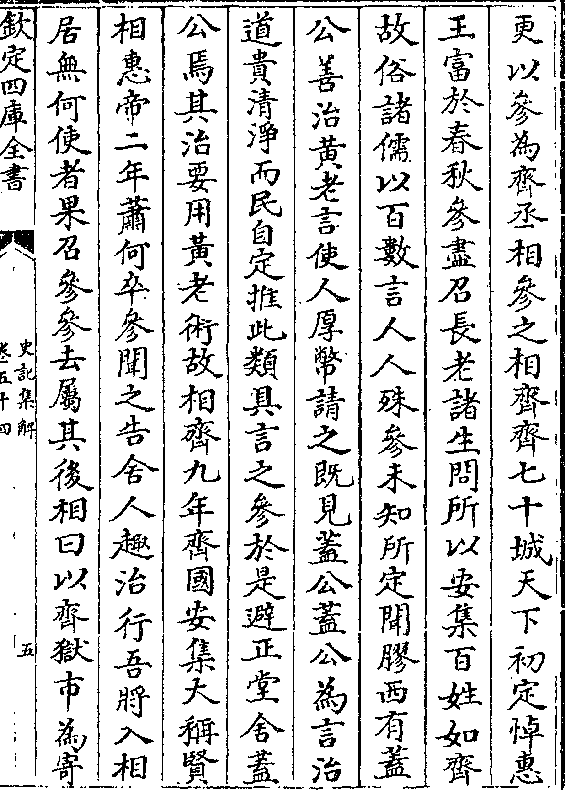 更以參為齊丞相參之相齊齊七十城天下初定悼惠
王富於春秋參盡召長老諸生問所以安集百姓如齊
故俗諸儒以百數言人人殊參未知所定聞膠西有蓋
公善治黃老言使人厚幣請之既見蓋公蓋公為言治
道貴清淨而民自定推此類具言之參於是避正堂舍蓋
公焉其治要用黃老術故相齊九年齊國安集大稱賢
相惠帝二年蕭何卒參聞之告舍人趣治行吾將入相
居無何使者果召參參去屬其後相曰以齊獄市為寄
欽定四庫全書
史記集解
卷五十四
五